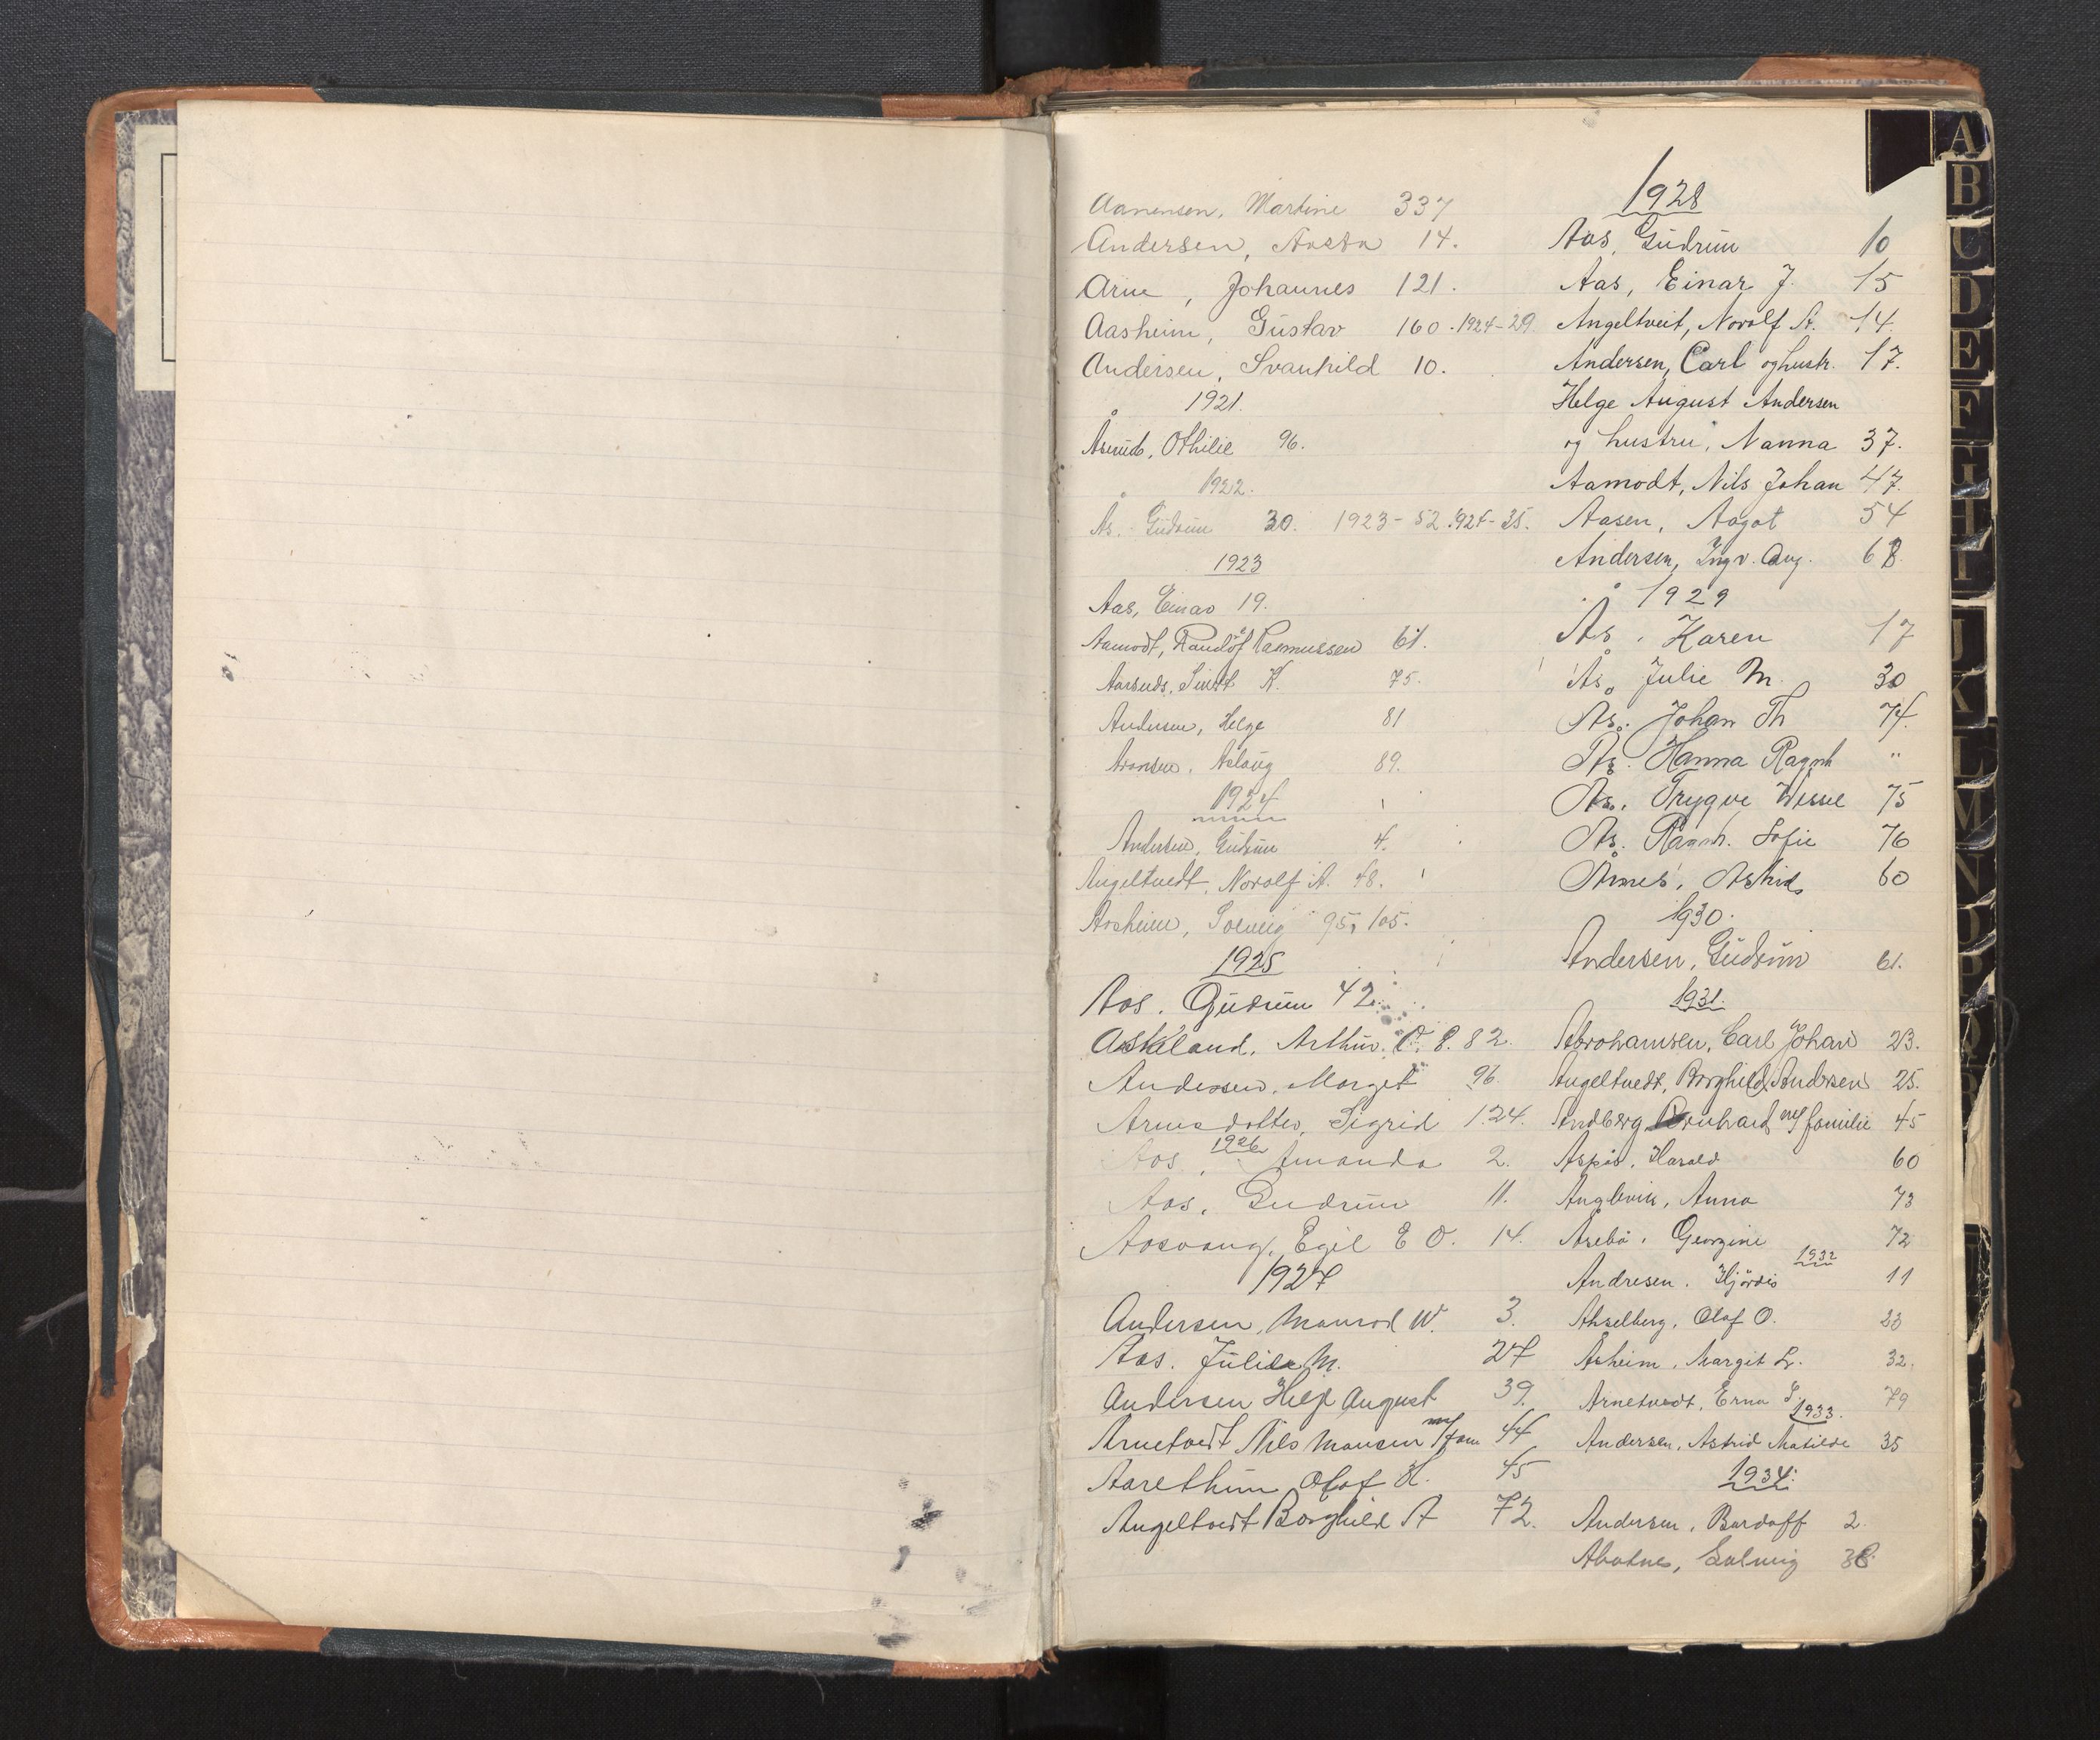 Aanensen, Martine 337
Andersen, Aasta 14.
Arne, Johannes 121.
Aasheim, Gustav 160. 1924-29
Andersen, Svanhild 10.
1921.
Åsrud, Othilie 96.
1922.
Ås. Gudrun 30. 1923-52. 1924-35.
1923
Aas, Einar 19.
Aamodt, Randolf Rasmussen 61.
75.
Andersen, Helge 81
Aronsen, Aslaug 89.
1924
Andersen, Gudrun 4.
Angeltvedt, Norolf A. 48.
Aasheim, Solveig 95, 105.
1925
Aas. Gudrun 42.
Askeland, Arthur. O. P. 82.
Andersen, Margit 96.
Arnesdotter, Sigrid 124.
1926
Aas, Amanda 2.
Aas, Gudrun 11.
Aasvang, Egil E O. 14.
1927
Andersen, Monrad W. 3.
Aas. Julie M. 27
Andersen Helge August 39.
Arnetvedt Nils Monsen m/fam 44
Aarethun Olaf H. 45
Angeltvedt Borghild A 72.
1928
Aas, Gudrun 10
Aas, Einar J. 15
Angeltveit, Norolf A. 14.
Andersen, Carl og hustr. 17.
Helge August Andersen
og hustru, Nanna 37.
Aamodt, Nils Johan 47.
Aasen, Aagot 54
Andersen, Ingv. Aug. 68.
1929
Ås, Karen 17
Ås, Julie M. 30
Ås. Johan Th 74.
Ås. Hanna Ragnh "
Ås. Trygve Wessel 75
Ås. Ragnh. Sofie 76
Årnes, Astrid 60
1930.
Andersen, Gudrun 61.
1931.
Abrahamsen, Carl Johan 23.
Angeltvedt, Borghild Andersen 25.
Andberg, Bernhard m/familie 45
Aspås, Harald 60
Anglevik, Anna 73
Årebø, Georgine 72
1932
Andresen. Hjørdis 11
Ahselberg, Olaf O. 23
Åsheim, Margit L. 32.
Arnetvedt, Erna S. 79
1933.
Andersen, Astrid Matilde 35
1934.
Andersen, Bardoff 2.
Solveig 38.
A
B
C
D
E
F
G
H
I
J
K
L
M
N
O
P
Q
R